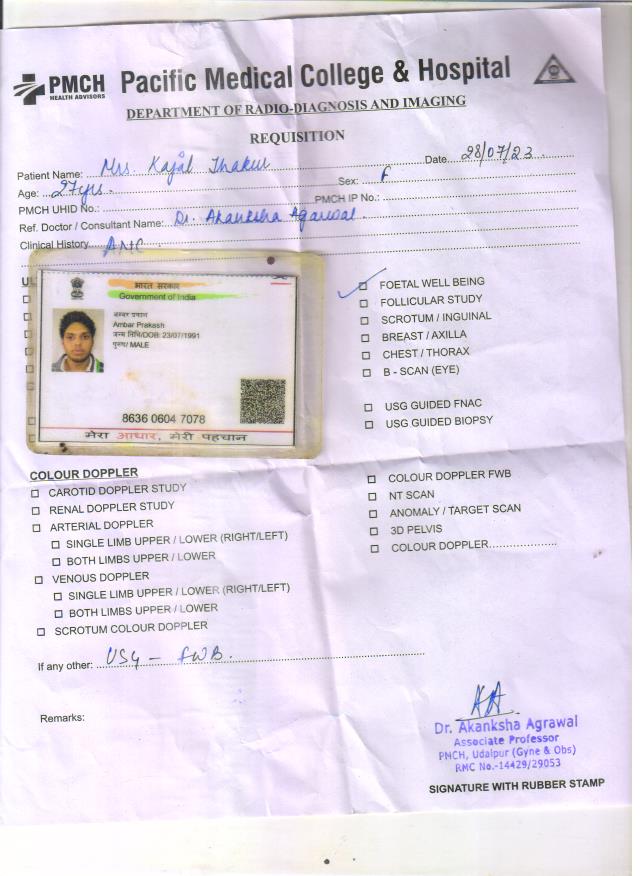 PMCH
HEALTH ADVISORS
Pacific Medical College & Hospital
DEPARTMENT OF RADIO-DIAGNOSIS AND IMAGING
REQUISITION
Patient Name: Mrs. Kajal Thakur Date 28/07/23
Age: 27yrs. Sex: F
PMCH UHID No.: PMCH IP No.:
Ref. Doctor / Consultant Name: Dr. Akanksha Agarwal.
Clinical History ANC
भारत सरकार
Government of India
अम्बर प्रकाश
Ambar Prakash
जन्म तिथि/DOB: 23/07/1991
पुरुष/ MALE
8636 0604 7078
मेरा आधार, मेरी पहचान
FOETAL WELL BEING
FOLLICULAR STUDY
SCROTUM / INGUINAL
BREAST / AXILLA
CHEST / THORAX
B - SCAN (EYE)
USG GUIDED FNAC
USG GUIDED BIOPSY
COLOUR DOPPLER
CAROTID DOPPLER STUDY
RENAL DOPPLER STUDY
ARTERIAL DOPPLER
SINGLE LIMB UPPER / LOWER (RIGHT/LEFT)
BOTH LIMBS UPPER / LOWER
VENOUS DOPPLER
SINGLE LIMB UPPER / LOWER (RIGHT/LEFT)
BOTH LIMBS UPPER / LOWER
SCROTUM COLOUR DOPPLER
COLOUR DOPPLER FWB
NT SCAN
ANOMALY / TARGET SCAN
3D PELVIS
COLOUR DOPPLER...................
If any other: USG - FWB.
Remarks:
Dr. Akanksha Agrawal
Associate Professor
PMCH, Udaipur (Gyne & Obs)
RMC No.-14429/29053
SIGNATURE WITH RUBBER STAMP